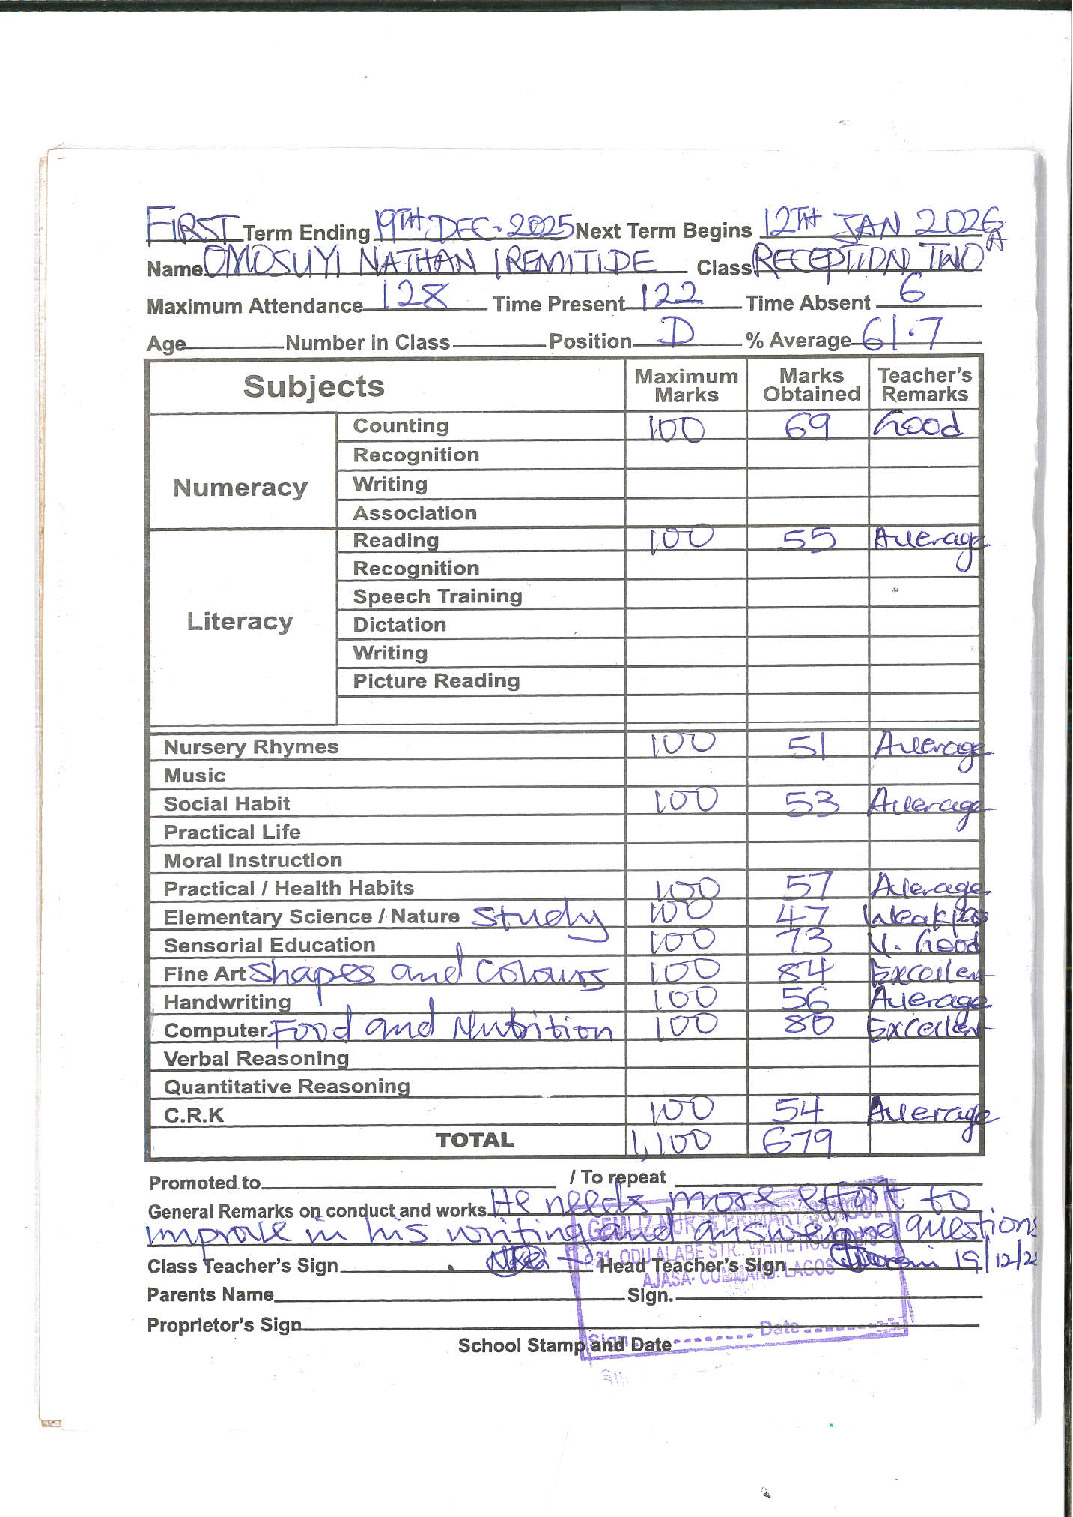 FIRST Term Ending 19TH DEC. 2025 Next Term Begins 12TH JAN 2026
Name OMOSUYI NATHAN IREMITIDE Class RECEPTION TWO A
Maximum Attendance 128 Time Present 122 Time Absent 6
Age Number in Class Position D % Average 61.7
Subjects Maximum Marks Marks Obtained Teacher's Remarks
Numeracy
Counting 100 69 Good
Recognition
Writing
Association
Literacy
Reading 100 55 Average
Recognition
Speech Training
Dictation
Writing
Picture Reading
Nursery Rhymes 100 51 Average
Music
Social Habit 100 53 Average
Practical Life
Moral Instruction
Practical / Health Habits 100 57 Average
Elementary Science / Nature Study 100 47 Weak pass
Sensorial Education 100 73 V. Good
Fine Art Shapes and Colours 100 84 Excellent
Handwriting 100 56 Average
Computer Food and Nutrition 100 80 Excellent
Verbal Reasoning
Quantitative Reasoning
C.R.K 100 54 Average
TOTAL 1,100 679
Promoted to / To repeat
General Remarks on conduct and works. He needs more effort to
improve in his writing and answering questions
Class Teacher's Sign Head Teacher's Sign 19/12/2
Parents Name Sign.
Proprietor's Sign
School Stamp and Date
31, ODU ALABE STR., WHITE HOUSE
AJASA-COMMAND. LAGOS
Sign Date